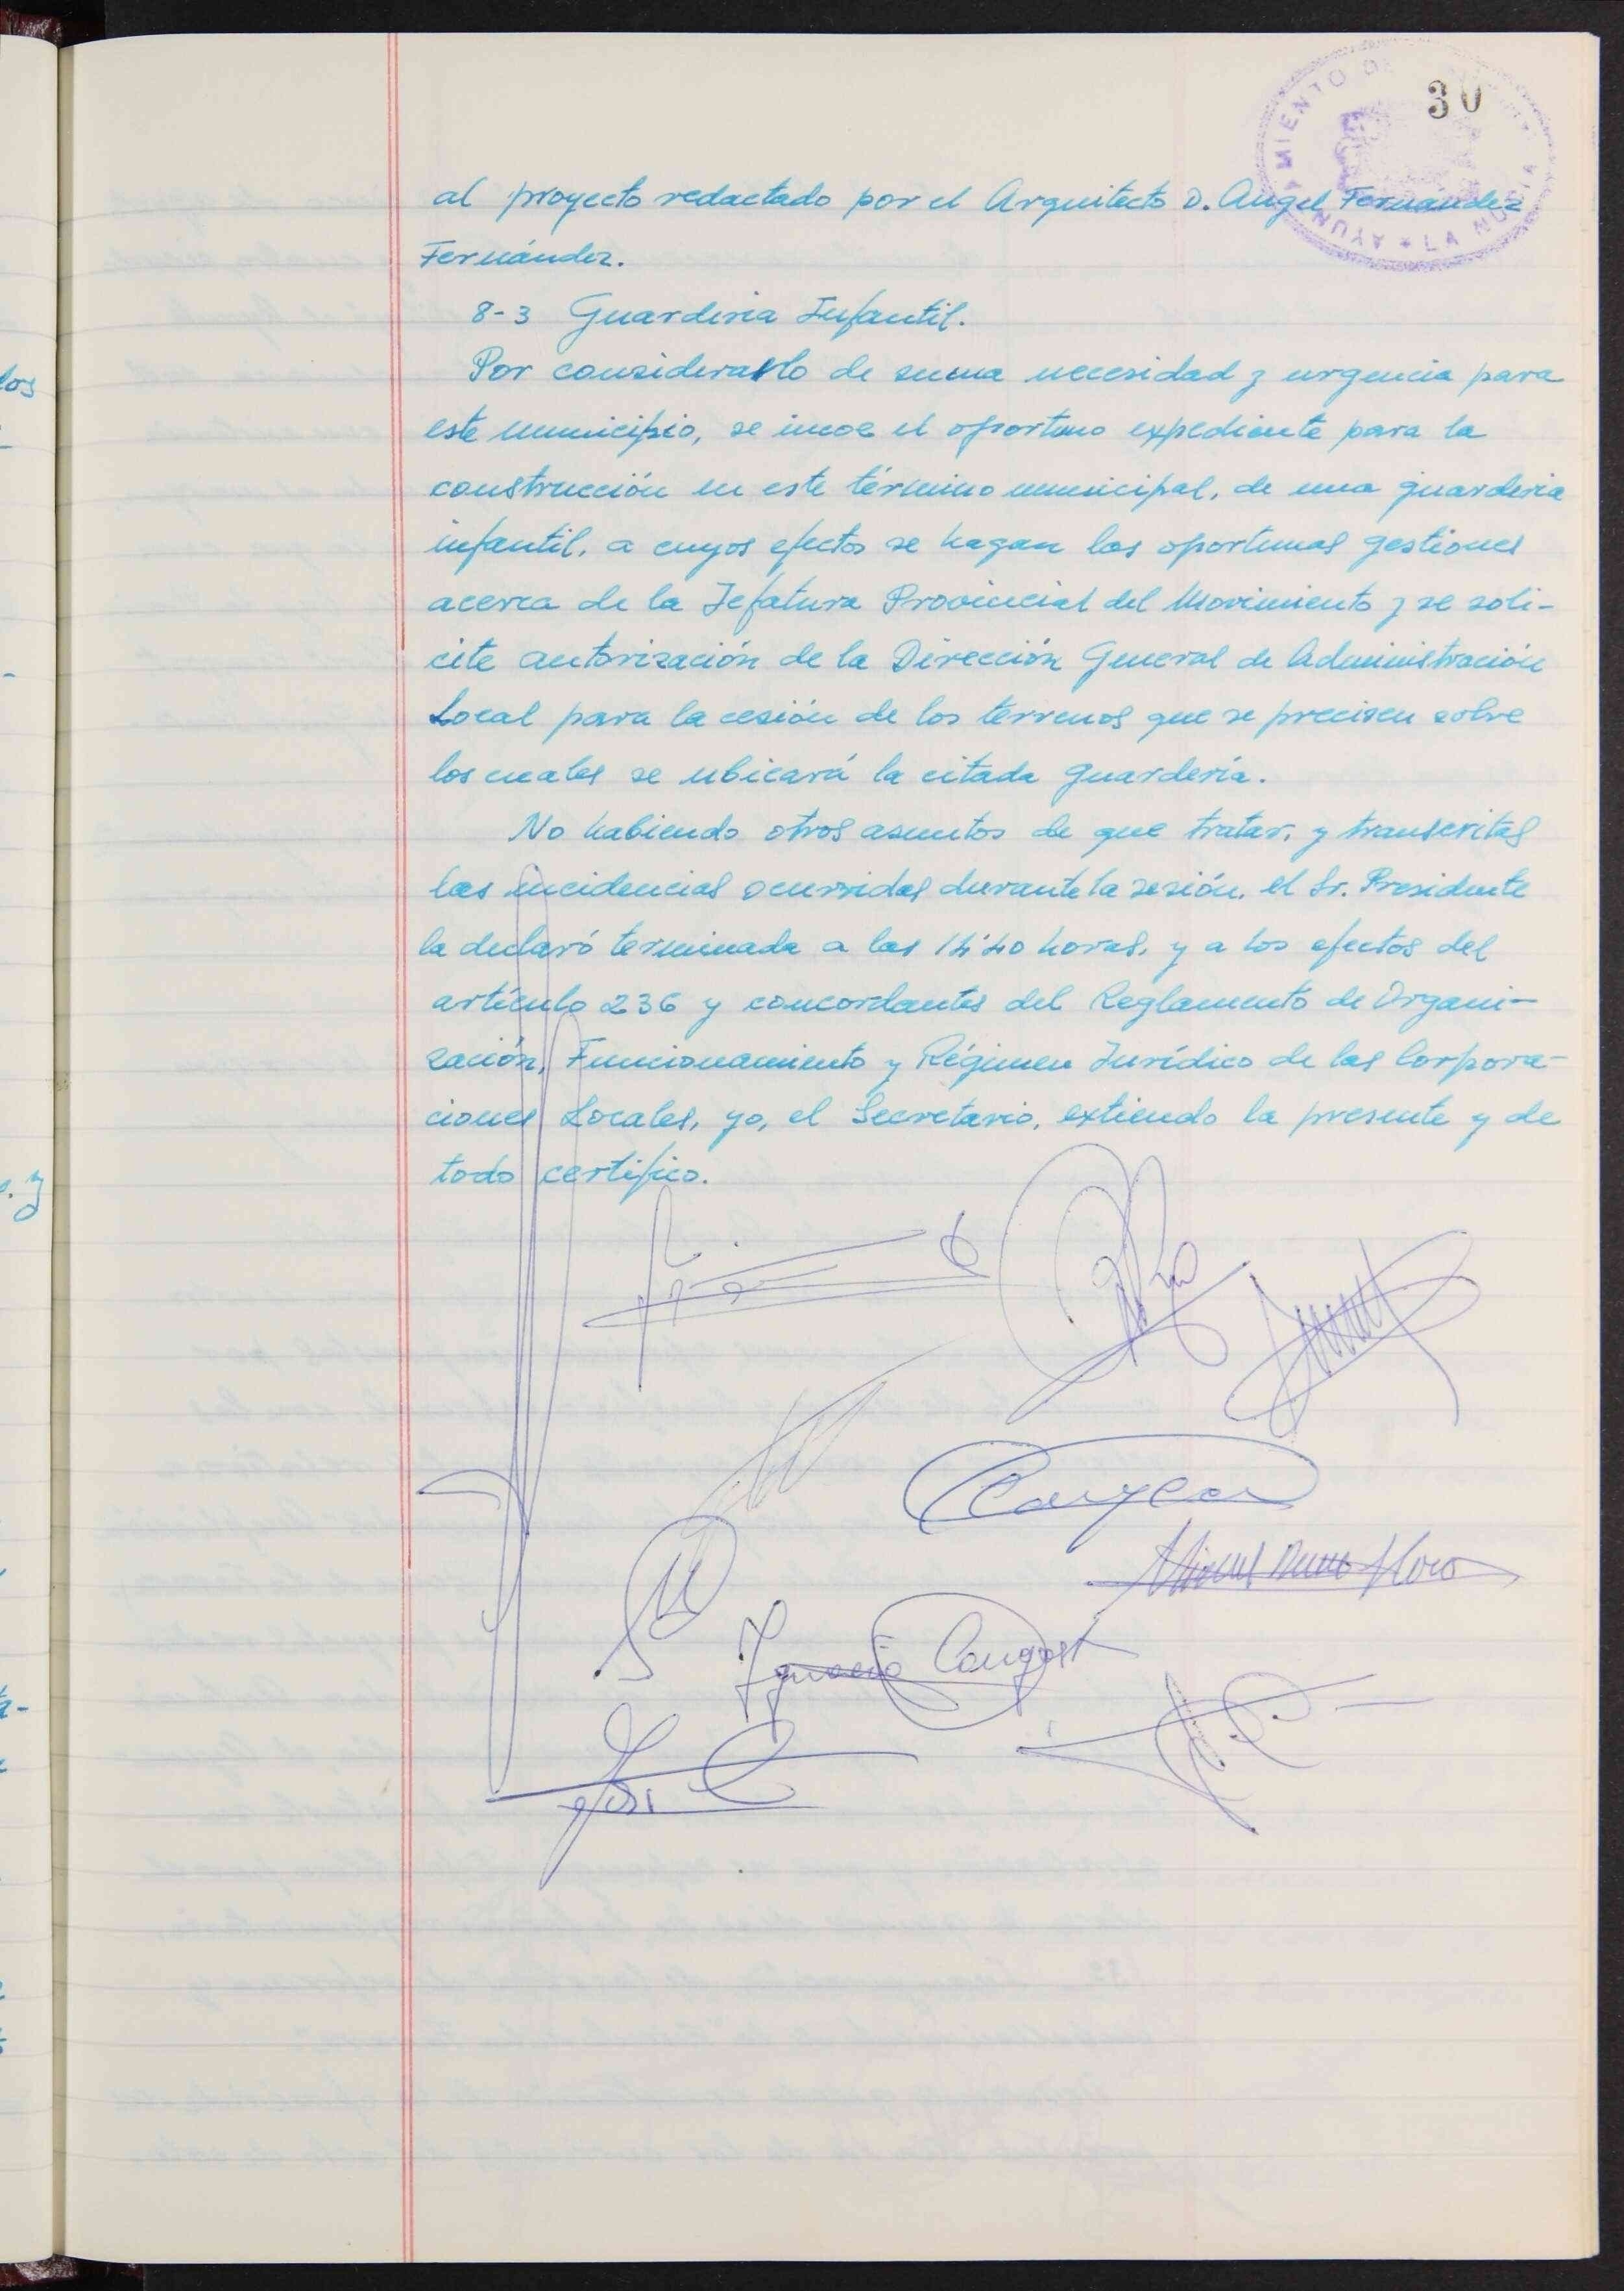 30
AYUNTAMIENTO DE LA NUCIA
al proyecto redactado por el Arquitecto D. Angel Fernández
Fernández.
8-3 Guardería Infantil.
Por considerarlo de suma necesidad y urgencia para
este municipio, se incoe el oportuno expediente para la
construcción en este término municipal, de una guarderia
infantil, a cuyos efectos se hagan las oportunas gestiones
acerca de la Jefatura Provincial del Movimiento y se soli-
cite autorización de la Dirección General de Administración
Local para la cesión de los terrenos que se precisen sobre
los cuales se ubicará la citada guardería.
No habiendo otros asuntos de que tratar, y transcritas
las incidencias ocurridas durante la sesión, el Sr. Presidente
la declaró terminada a las 14'40 horas, y a los efectos del
artículo 236 y concordantes del Reglamento de Organi-
zación, Funcionamiento y Régimen Jurídico de las Corpora-
ciones Locales, yo, el Secretario, extiendo la presente y de
todo certifico.
Ignacio
José